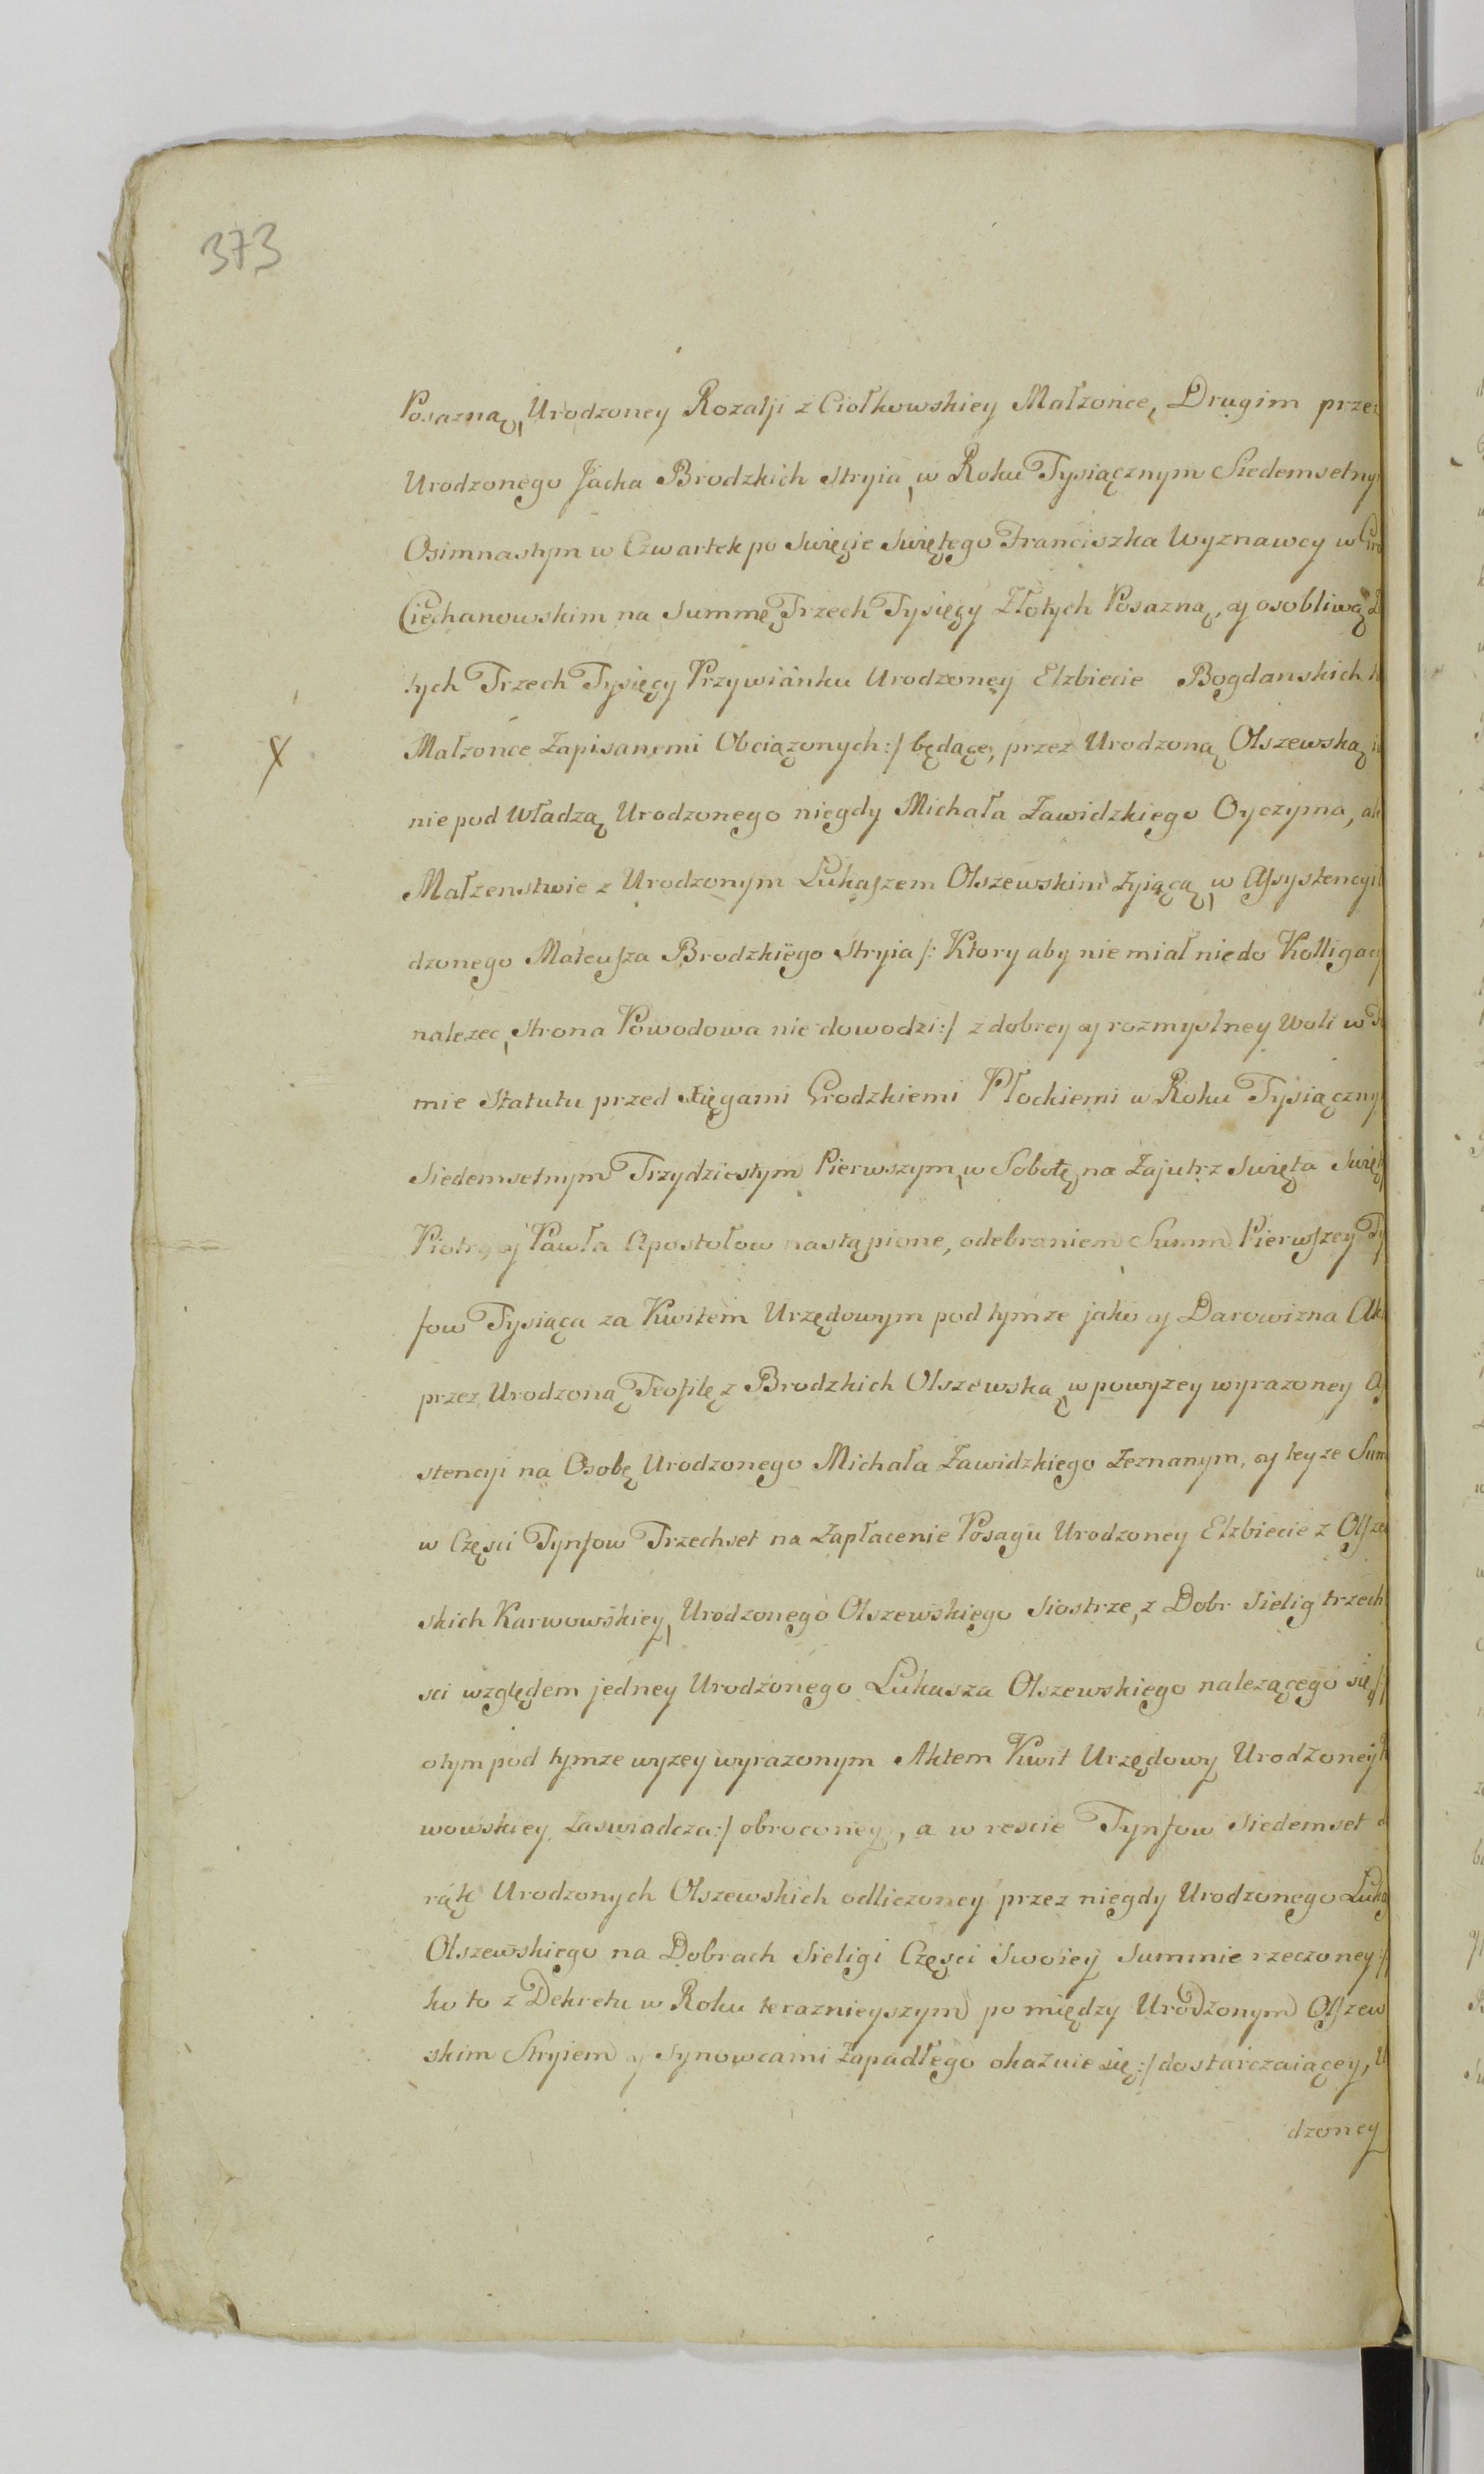 373
Posazną, Urodzoney Rozalji z Ciołkowskiey Małzonce, Drugim przez
Urodzonego Jacka Brodzkich Stryia, w Roku Tysiącznym Siedemsetny
Osimnastym w Czwartek po Swięcie Swiętego Franciszka Wyznawcy w
Ciechanowskim na Summę Trzech Tysięcy Złotych Posazną, y osobliwą
tych Trzech Tysięcy Przywianku Urodzoney Elzbiecie Bogdanskich
Małzonce Zapisanemi Obciązonych:/ będące, przez Urodzoną Olszewską
nie pod Władzą Urodzonego niegdy Michała Zawidzkiego Oyczyma,
Małzenstwie z Urodzonym Lukaszem Olszewskim zyiącą, w Assystencyi
dzonego Mateusza Brodzkiego Stryia /: Ktory aby nie miał nie do Kolligacy
nalezec, Strona Powodowa nie dowodzi:/ z dobrey y rozmyslney Woli w
mie Statutu przed Xięgami Grodzkiemi Płockiemi w Roku Tysiączny
Siedemsetnym Trzydziestym Pierwszym, w Sobotę na Zajutrz Swięta Swięt
Piotra y Pawła Apostołow nastąpione, odebraniem Summ Pierwszey Ty
fow Tysiąca za Kwitem Urzędowym pod tymze jako y Darowizna Ak
przez Urodzoną Teofilę z Brodzkich Olszewską w powyzey wyrazoney
stencyi na Osobę Urodzonego Michała Zawidzkiego Zeznanym, y teyze Sum
w Częsci Tynfow Trzechset na Zapłacenie Posagu Urodzoney Elzbiecie z Olsze
skich Karwowskiey, Urodzonego Olszewskiego Siostrze, z Dobr Sielig trzech
sci względem jedney Urodzonego Lukasza Olszewskiego nalezącego się /:
o tym pod tymze wyzey wyrazonym Aktem Kwit Urzędowy Urodzoney
wowskiey Zaswiadcza:/ obroconey, a w rescie Tynfow Siedemset
rąk Urodzonych Olszewskich odliczoney przez niegdy Urodzonego Luka
Olszewskiego na Dobrach Sieligi Częsci Swoiey Summie rzeczoney /:
ko to z Dekretu w Roku teraznieyszym po między Urodzonym Olszew
skim Stryiem y Synowcami Zapadłego okazuie się:/ dostarczaiącey,
dzoney